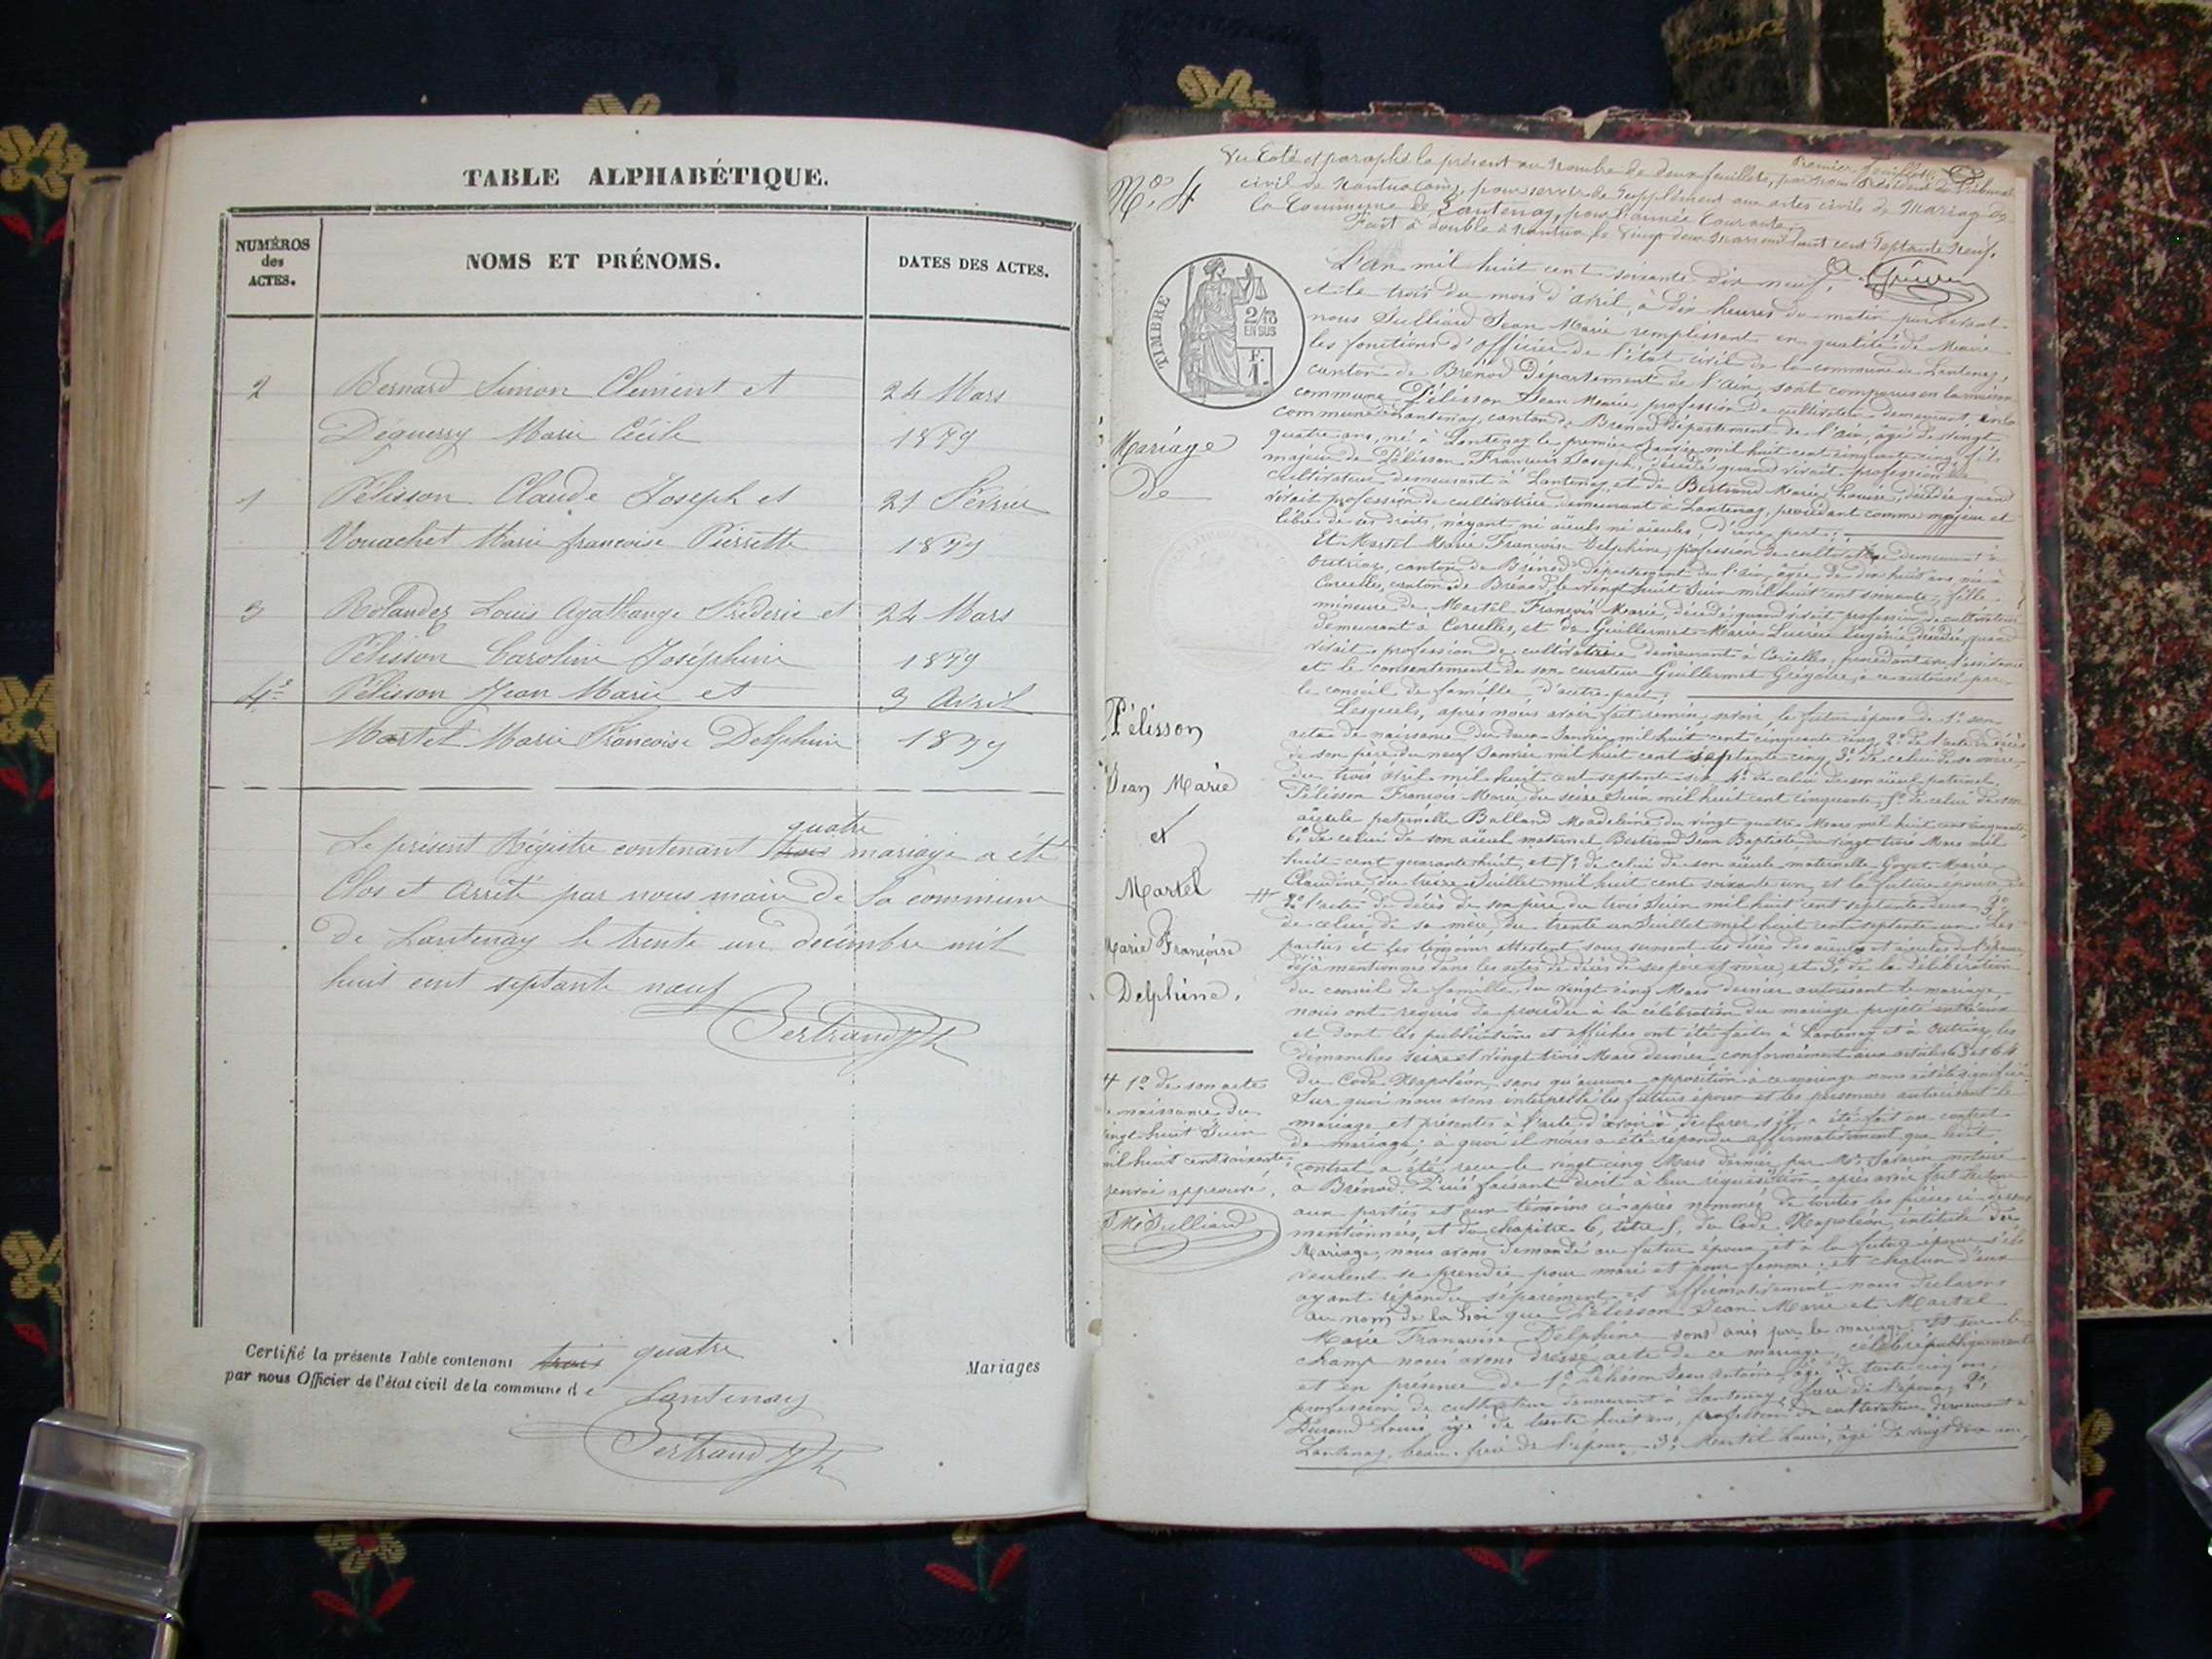 TABLE ALPHABÉTIQUE.
NUMÉROS
des
ACTES.
NOMS ET PRÉNOMS.
DATES DES ACTES.
2 Bernard Simon Clément et 24 Mars
Déguerry Marie Cécile 1879
1 Pélisson Claude Joseph et 21 Février
Vouachet Marie françoise Pierrette 1879
3 Rolandez Louis Agathange Fréderic et 24 Mars
Pélisson Caroline Joséphine 1879
4 Pélisson Jean Marie et 3 Avril
Martel Marie Françoise Delphine 1879
quatre
Le présent Régistre contenant trois mariage a été
Clos et arrêté par nous maire de la commune
de Lantenay le trente un décembre mil
huit cent septante neuf
Bertrand
Certifié la présente Table contenant trois quatre Mariages
par nous Officier de l'état civil de la commune de Lantenay
Bertrand
Premier feuillet.
Vu Coté et paraphé le présent au nombre de deux feuillets, par nous Président du Tribunal
civil de Nantua (ain), pour servir de Supplément aux actes civils de Mariage de
la Commune de Lantenay, pour l'année Courante.
Fait à double à Nantua le Vingt deux Mars mil huit cent Septante Neuf.
N.º 4
TIMBRE
2/10
EN SUS
F.
1.
Mariage
de
L'an mil huit cent soixante dix neuf,
et le trois du mois d'avril, à dix heures du matin par devant
nous Julliard Jean Marie remplissant en qualité de Maire
les fonctions d'officier de l'état civil de la commune de Lantenay,
canton de Brénod Département de l'Ain, sont comparus en la maison
commune Pélisson Jean Marie, profession de cultivateur demeurant en la
commune Lantenay, canton de Brénod département de l'ain, âgé de vingt
quatre ans, né à Lantenay le premier Janvier mil huit cent cinquante cinq, fils
majeur de Pélisson François Joseph, décédé quand vivait profession de
cultivateur demeurant à Lantenay, et de Bertrand Marie Louise, décédée quand
vivait profession de cultivatrice demeurant à Lantenay, procédant comme majeur et
libre de ses droits, n'ayant ni aïeuls ni aïeules, d'une part;
Et Martel Marie Françoise Delphine, profession de cultivatrice demeurant à
Outriaz, canton de Brénod Département de l'ain, âgée de dix huit ans, née à
Corcelles, canton de Brénod, le vingt huit Juin mil huit cent soixante, fille
mineure de Martel François Marie, décédé quand vivait profession de cultivateur
demeurant à Corcelles, et de Guillermet Marie Eugénie décédée, quand
vivait profession de cultivatrice demeurant à Corcelles, procédant sous l'assistance
et le consentement de son curateur Guillermet Grégoire, a ce autorisé par
le conseil de famille d'autre part;
Pélisson
Jean Marie
et
Martel
Marie Françoise
Delphine.
Lesquels, après nous avoir fait remise, savoir, le futur époux de 1º son
acte de naissance du deux Janvier mil huit cent cinquante cinq, 2º de l'acte de décès
de son père du neuf Janvier mil huit cent septante cinq, 3º de celui de sa mère,
du trois avril mil huit cent septante six 4º de celui de son aïeul paternel
Pélisson François Marie du seize Juin mil huit cent cinquante, 5º de celui de son
aïeule paternelle Balland Madeleine du vingt quatre Mars mil huit cent cinquante,
6º de celui de son aïeul maternel Bertrand Jean Baptiste du vingt trois Mars mil
huit cent quarante huit, et 7º de celui de son aïeule maternelle Goyet Marie
Claudine du treize Juillet mil huit cent soixante un, et la future épouse de
2º l'acte de décès de son père du trois Juin mil huit cent septante deux 3º
de celui de sa mère, du trente un Juillet mil huit cent septante un Les
parties et les témoins attestent sous serment les décès des aïeuls et aïeules de l'épouse
déjà mentionnés dans les actes de décès de ses père et mère, et 3º de la délibération
du conseil de famille du vingt cinq Mars dernier autorisant le mariage
nous ont requis de procéder à la célébration du mariage projeté entre eux
et dont les publications et affiches ont été faites à Lantenay et à Outriaz les
dimanches seize et vingt trois Mars dernier conformément aux articles 63 et 64
du Code Napoléon, sans qu'aucune opposition à ce mariage nous ait été signifiée.
Sur quoi nous avons interpellé les futurs époux et les personnes autorisant le
mariage et présentes à l'acte d'avoir à déclarer s'il a été fait un contrat
de mariage; à quoi il nous a été répondu affirmativement que ledit
contrat a été reçu le vingt cinq Mars dernier par Me Savarin notaire
à Brénod. Puis faisant droit à leur réquisition après avoir fait lecture
aux parties et aux témoins ci-après nommés de toutes les pièces ci-dessus
mentionnées, et du chapitre 6, titre 5, du Code Napoléon, intitulé du
Mariage, nous avons demandé au futur époux et à la future épouse s'ils
veulent se prendre pour mari et pour femme; et chacun d'eux
ayant répondu séparément et affirmativement nous déclarons
au nom de la Loi que Pélisson Jean Marie et Martel
Marie Françoise Delphine sont unis par le mariage. Et sur le
champ nous avons dressé acte de ce mariage, célébré publiquement
et en présence de 1º Pélisson Jean Antoine âgé de trente cinq ans,
profession de cultivateur demeurant à Lantenay, frère de l'époux, 2º,
Durand Louis, âgé de trente huit ans, profession de cultivateur demeurant à
Lantenay, beau-frère de l'époux 3º Martel Louis, âgé de vingt deux ans,
# 1º de son acte
de naissance du
vingt huit Juin
mil huit cent soixante
renvoi approuvé,
JM Julliard